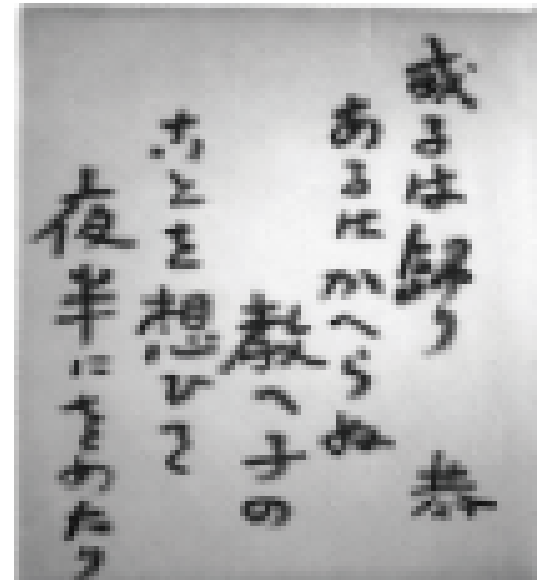 或るは歸り 恭
あるはかへらぬ
教へ子の
ことを想ひて
夜半にさめたり